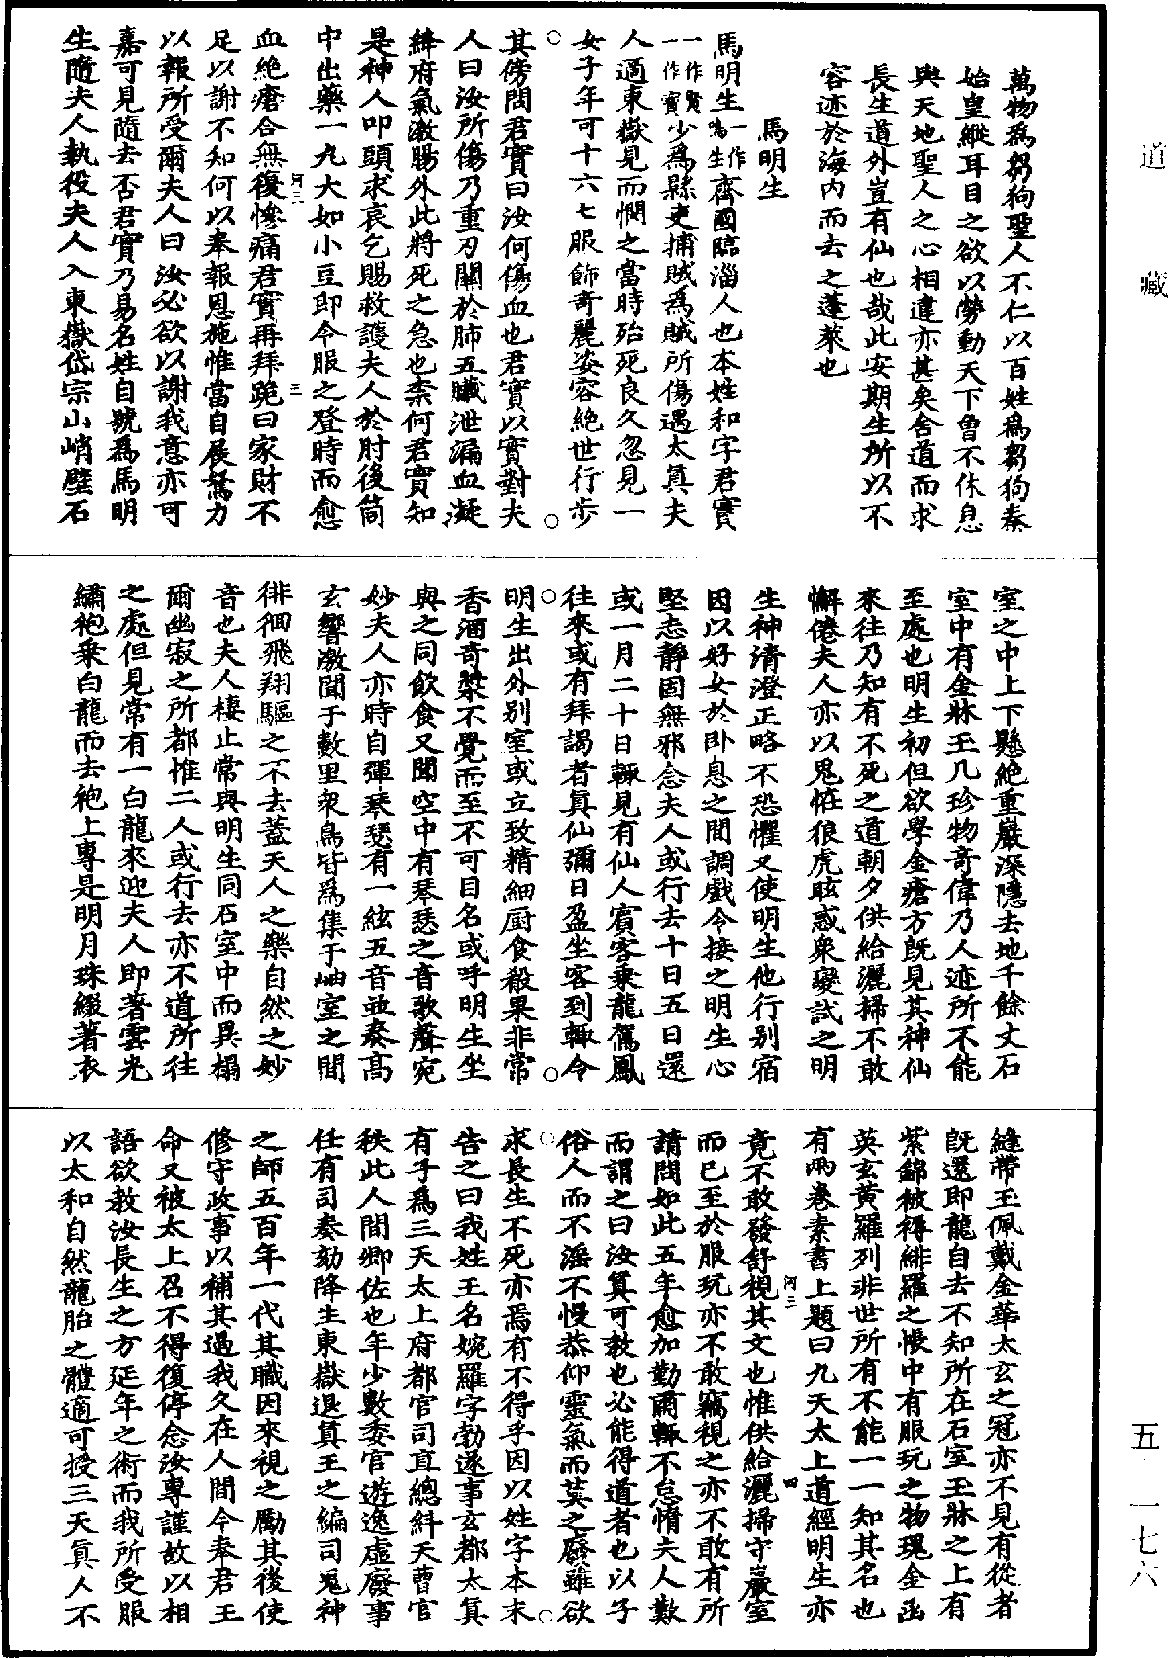 道藏
萬物為芻狗聖人不仁以百姓為芻狗秦
始皇縱耳目之欲以勞動天下曾不休息
與天地聖人之心相違亦甚矣舍道而求
長生道外豈有仙也哉此安期生所以不
容迹於海內而去之蓬萊也
馬明生
馬明生一作鳴生齊國臨淄人也本姓和字君實
一作賢一作寶少為縣吏捕賊為賊所傷遇太真夫
人適東嶽見而憫之當時殆死良久忽見一
女子年可十六七服飾奇麗姿容絕世行步
其傍問君實曰汝何傷血也君實以實對夫
人曰汝所傷乃重刃關於肺五臟泄漏血凝
絳府氣激腸外此將死之急也柰何君實知
是神人叩頭求哀乞賜救護夫人於肘後筒
中出藥一丸大如小豆即令服之登時而愈
血絕瘡合無復慘痛君實再拜跪曰家財不
河三 三
足以謝不知何以奉報恩施惟當自展駑力
以報所受爾夫人曰汝必欲以謝我意亦可
嘉可見隨去否君實乃易名姓自號為馬明
生隨夫人執役夫人入東嶽岱宗山峭壁石
室之中上下懸絕重巖深隱去地千餘丈石
室中有金牀玉几珍物奇偉乃人迹所不能
至處也明生初但欲學金瘡方既見其神仙
來往乃知有不死之道朝夕供給灑掃不敢
懈倦夫人亦以鬼怪狼虎眩惑衆變試之明
生神清澄正略不恐懼又使明生他行別宿
因以好女於卧息之間調戲令接之明生心
堅志靜固無邪念夫人或行去十日五日還
或一月二十日輒見有仙人賓客乘龍駕鳳
往來或有拜謁者真仙彌日盈坐客到輒令
明生出外別室或立致精細厨食殽果非常
香酒奇漿不覺而至不可目名或呼明生坐
與之同飲食又聞空中有琴瑟之音歌聲宛
妙夫人亦時自彈琴瑟有一絃五音並奏高
玄響激聞于數里衆鳥皆為集于岫室之間
徘徊飛翔驅之不去蓋天人之樂自然之妙
音也夫人棲止常與明生同石室中而異榻
爾幽寂之所都惟二人或行去亦不道所往
之處但見常有一白龍來迎夫人即著雲光
繡袍乘白龍而去袍上專是明月珠綴著衣
縫帶玉佩戴金華太玄之冠亦不見有從者
既還即龍自去不知所在石室玉牀之上有
紫錦被褥緋羅之帳中有服玩之物瑰金函
英玄黃羅列非世所有不能一一知其名也
有兩卷素書上題曰九天太上道經明生亦
河三 四
竟不敢發舒視其文也惟供給灑掃守巖室
而已至於服玩亦不敢竊視之亦不敢有所
請問如此五年愈加勤肅輒不怠惰夫人歎
而謂之曰汝真可教也必能得道者也以子
俗人而不淫不慢恭仰靈氣而莫之廢雖欲
求長生不死亦焉有不得乎因以姓字本末
告之曰我姓王名婉羅字勃遂事玄都太真
有子為三天太上府都官司直總糾天曹官
秩此人間卿佐也年少數委官遊逸虛廢事
任有司奏劾降生東嶽退真王之編司鬼神
之師五百年一代其職因來視之勵其後使
修守政事以補其過我久在人間今奉君王
命又被太上召不得復停念汝專謹故以相
語欲教汝長生之方延年之術而我所受服
以太和自然龍胎之醴適可授三天真人不
五一七六